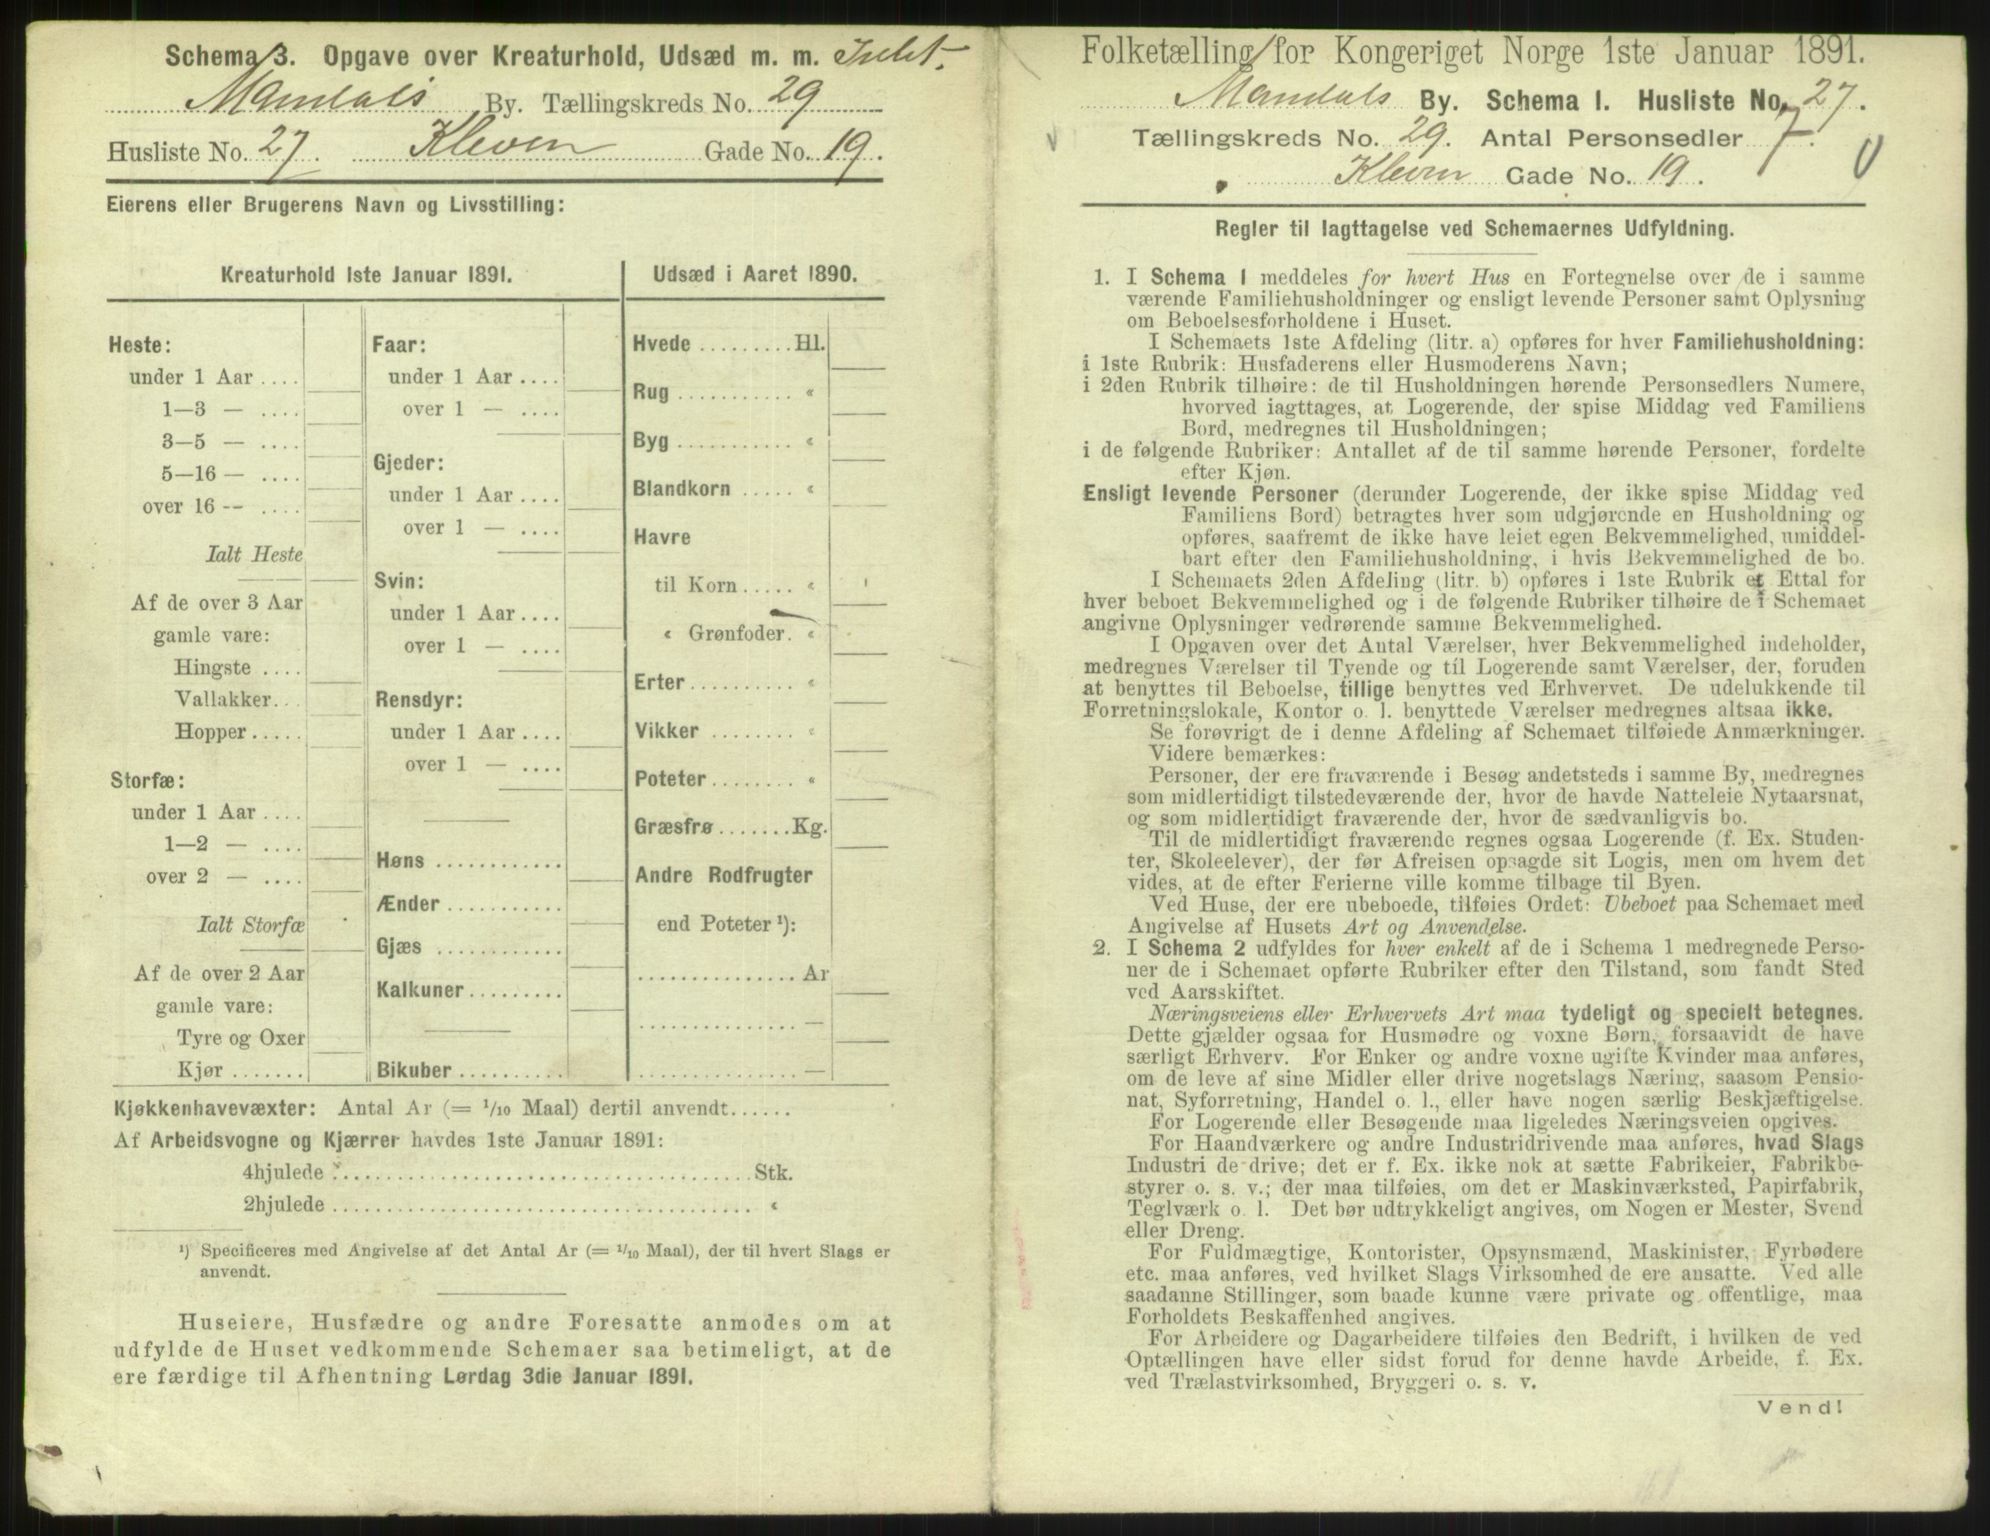 Schema 3. Opgave over Kreaturhold, Udsæd m. m. Intet.
Mandals By. Tællingskreds No. 29
Husliste No. 27. Kleven Gade No. 19.
Eierens eller Brugerens Navn og Livsstilling:
Kreaturhold 1ste Januar 1891.
Heste:
under 1 Aar ....
1—3 — ....
3—5 — ....
5—16 — ....
over 16 -- ....
Ialt Heste
Af de over 3 Aar
gamle vare:
Hingste ....
Vallakker...
Hopper.....
Storfæ:
under 1 Aar ....
1—2 — ....
over 2 — ....
Ialt Storfæ
Af de over 2 Aar
gamle vare:
Tyre og Oxer
Kjør .......
Faar:
under 1 Aar ....
over 1 — ....
Gjeder:
under 1 Aar ....
over 1 — ....
Svin:
under 1 Aar ....
over 1 — ....
Rensdyr:
under 1 Aar ....
over 1 — ....
Høns ............
Ænder ...........
Gjæs ............
Kalkuner.........
Bikuber ..........
Udsæd i Aaret 1890.
Hvede .........Hl.
Rug ........... «
Byg ........... «
Blandkorn ..... «
Havre
til Korn ..... «
« Grønfoder. «
Erter.......... «
Vikker ........ «
Poteter ........ «
Græsfrø .......Kg.
Andre Rodfrugter
end Poteter ¹):
............... Ar
............... —
............... —
Kjøkkenhavevæxter: Antal Ar (= 1/10 Maal) dertil anvendt......
Af Arbeidsvogne og Kjærrer havdes 1ste Januar 1891:
4hjulede ..................................... Stk.
2hjulede ..................................... «
¹) Specificeres med Angivelse af det Antal Ar (= 1/10 Maal), der til hvert Slags er
anvendt.
Huseiere, Husfædre og andre Foresatte anmodes om at
udfylde de Huset vedkommende Schemaer saa betimeligt, at de
ere færdige til Afhentning Lørdag 3die Januar 1891.
Folketælling for Kongeriget Norge 1ste Januar 1891.
Mandals By. Schema 1. Husliste No. 27.
Tællingskreds No. 29. Antal Personsedler 7.
Kleven Gade No. 19.
Regler til Iagttagelse ved Schemaernes Udfyldning.
1. I Schema 1 meddeles for hvert Hus en Fortegnelse over de i samme
værende Familiehusholdninger og ensligt levende Personer samt Oplysning
om Beboelsesforholdene i Huset.
I Schemaets 1ste Afdeling (litr. a) opføres for hver Familiehusholdning:
i 1ste Rubrik: Husfaderens eller Husmoderens Navn;
i 2den Rubrik tilhøire: de til Husholdningen hørende Personsedlers Numere,
hvorved iagttages, at Logerende, der spise Middag ved Familiens
Bord, medregnes til Husholdningen;
i de følgende Rubriker: Antallet af de til samme hørende Personer, fordelte
efter Kjøn.
Ensligt levende Personer (derunder Logerende, der ikke spise Middag ved
Familiens Bord) betragtes hver som udgjørende en Husholdning og
opføres, saafremt de ikke have leiet egen Bekvemmelighed, umiddel-
bart efter den Familiehusholdning, i hvis Bekvemmelighed de bo.
I Schemaets 2den Afdeling (litr. b) opføres i 1ste Rubrik et Ettal for
hver beboet Bekvemmelighed og i de følgende Rubriker tilhøire de i Schemaet
angivne Oplysninger vedrørende samme Bekvemmelighed.
I Opgaven over det Antal Værelser, hver Bekvemmelighed indeholder,
medregnes Værelser til Tyende og til Logerende samt Værelser, der, foruden
at benyttes til Beboelse, tillige benyttes ved Erhvervet. De udelukkende til
Forretningslokale, Kontor o. l. benyttede Værelser medregnes altsaa ikke.
Se forøvrigt de i denne Afdeling af Schemaet tilføiede Anmærkninger.
Videre bemærkes:
Personer, der ere fraværende i Besøg andetsteds i samme By, medregnes
som midlertidigt tilstedeværende der, hvor de havde Natteleie Nytaarsnat,
og som midlertidigt fraværende der, hvor de sædvanligvis bo.
Til de midlertidigt fraværende regnes ogsaa Logerende (f. Ex. Studen-
ter, Skoleelever), der før Afreisen opsagde sit Logis, men om hvem det
vides, at de efter Ferierne ville komme tilbage til Byen.
Ved Huse, der ere ubeboede, tilføies Ordet: Ubeboet paa Schemaet med
Angivelse af Husets Art og Anvendelse.
2. I Schema 2 udfyldes for hver enkelt af de i Schema 1 medregnede Perso-
ner de i Schemaet opførte Rubriker efter den Tilstand, som fandt Sted
ved Aarsskiftet.
Næringsveiens eller Erhvervets Art maa tydeligt og specielt betegnes.
Dette gjælder ogsaa for Husmødre og voxne Børn, forsaavidt de have
særligt Erhverv. For Enker og andre voxne ugifte Kvinder maa anføres,
om de leve af sine Midler eller drive nogetslags Næring, saasom Pensio-
nat, Syforretning, Handel o. l., eller have nogen særlig Beskjæftigelse.
For Logerende eller Besøgende maa ligeledes Næringsveien opgives.
For Haandværkere og andre Industridrivende maa anføres, hvad Slags
Industri de drive; det er f. Ex. ikke nok at sætte Fabrikeier, Fabrikbe-
styrer o. s. v.; der maa tilføies, om det er Maskinværksted, Papirfabrik,
Teglværk o. l. Det bør udtrykkeligt angives, om Nogen er Mester, Svend
eller Dreng.
For Fuldmægtige, Kontorister, Opsynsmænd, Maskinister, Fyrbødere
etc. maa anføres, ved hvilket Slags Virksomhed de ere ansatte. Ved alle
saadanne Stillinger, som baade kunne være private og offentlige, maa
Forholdets Beskaffenhed angives.
For Arbeidere og Dagarbeidere tilføies den Bedrift, i hvilken de ved
Optællingen have eller sidst forud for denne havde Arbeide, f. Ex.
ved Trælastvirksomhed, Bryggeri o. s. v.
Vend!